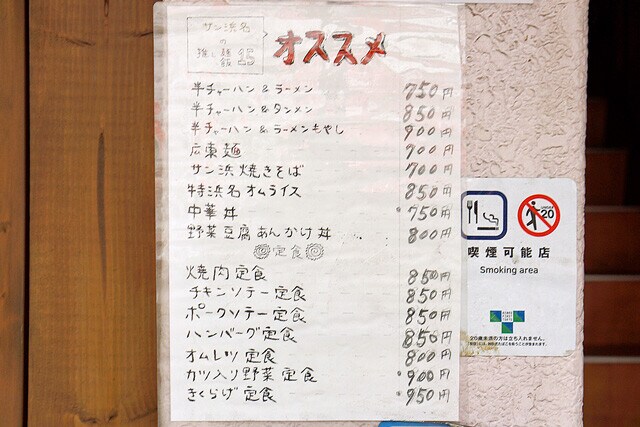 サン浜名
の
推し麺飯 15
オススメ
半チャーハン&ラーメン 750円
半チャーハン&タンメン 850円
半チャーハン&ラーメンもやし 900円
広東麺 900円
サン浜焼きそば 700円
特浜名オムライス 850円
中華丼 750円
野菜豆腐あんかけ丼 800円
定食
焼肉定食 850円
チキンソテー定食 850円
ポークソテー定食 850円
ハンバーグ定食 850円
オムレツ定食 800円
カツ入り野菜定食 900円
きくらげ定食 950円
UNDER
20
喫煙可能店
Smoking area
20歳未満の方は立ち入れません。